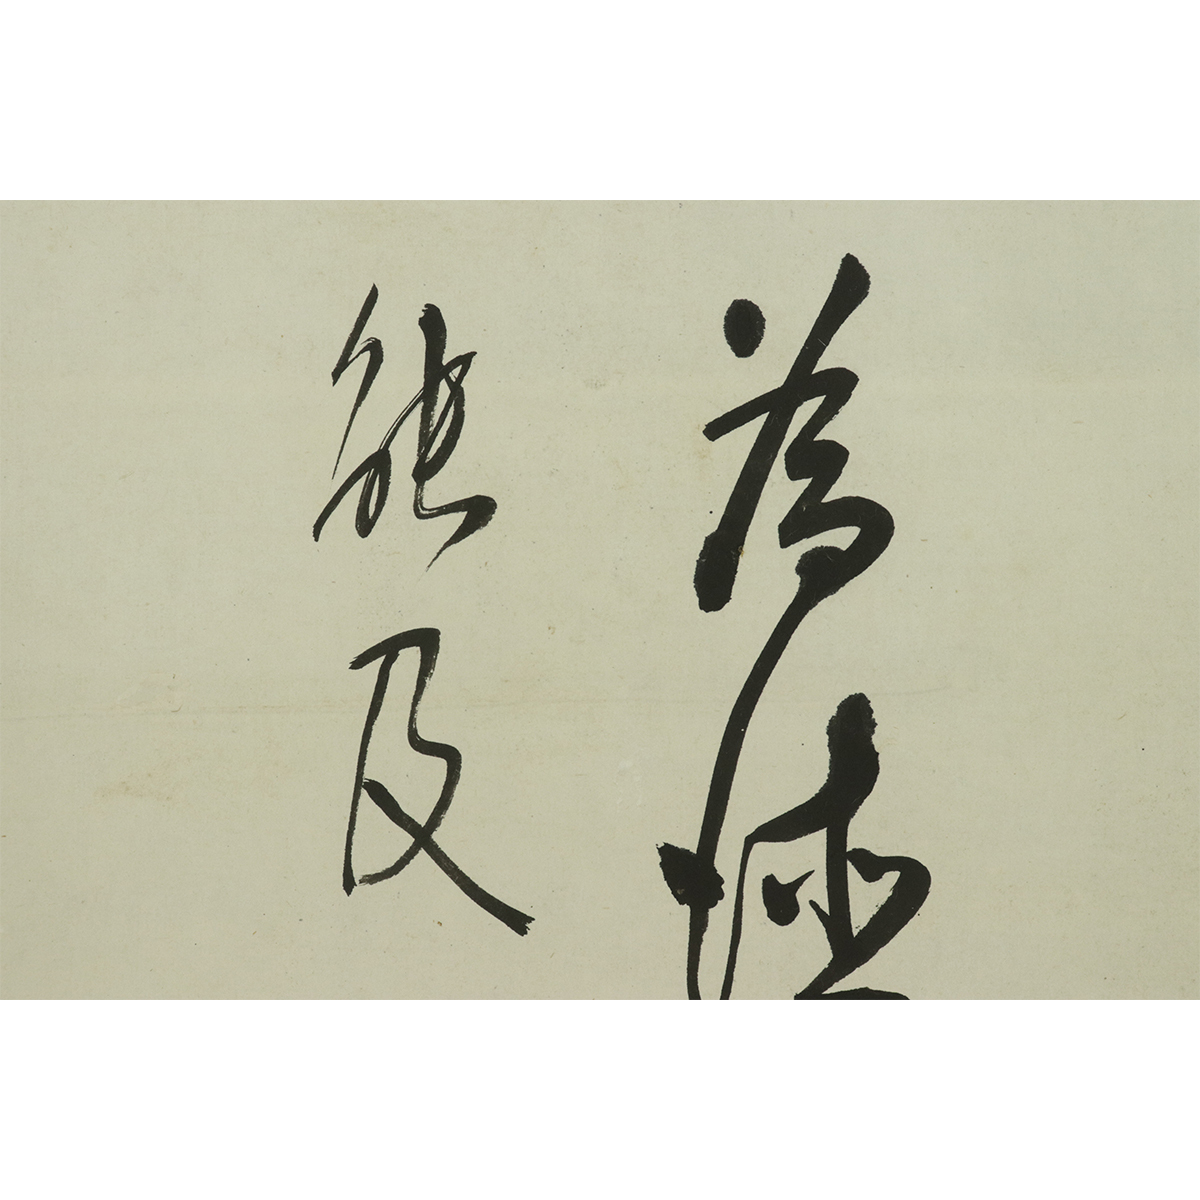 為
能及